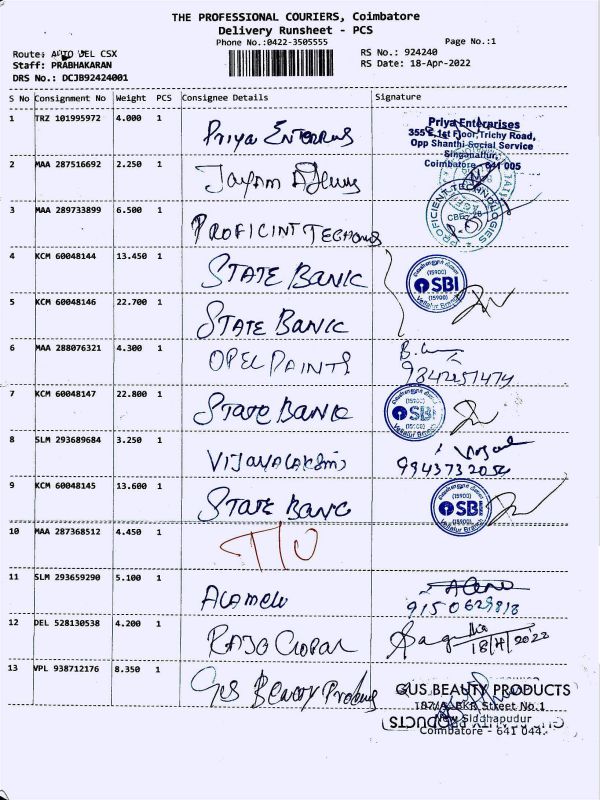 THE PROFESSIONAL COURIERS, Coimbatore
Delivery Runsheet - PCS
Phone No.:0422-3505555
Page No.:1
Route: AUTO DEL CSX
RS No.: 924240
Staff: PRABHAKARAN
RS Date: 18-Apr-2022
DRS No.: DCJB92424001
S No Consignment No Weight PCS Consignee Details Signature
1 TRZ 101995972 4.000 1 Priya
Priya Enterprises
355 E,1st Floor,Trichy Road,
Opp Shanthi Social Service
Singanallur,
Coimbatore - 641 005
2 MAA 287516692 2.250 1
3 MAA 289733899 6.500 1 PROFICINT
PROFICIENT TECHNOLOGIES
4 KCM 60048144 13.450 1 STATE BANK
(15900)
SBI
(15900)
Vellalur Branch
5 KCM 60048146 22.700 1 STATE BANK
6 MAA 288076321 4.300 1 OPEL PAINTS
9842257474
7 KCM 60048147 22.800 1 STATE BANK
(15900)
SBI
(15900)
Vellalur Branch
8 SLM 293689684 3.250 1
9943732054
9 KCM 60048145 13.600 1 STATE BANK
(15900)
SBI
(15900)
Vellalur Branch
10 MAA 287368512 4.450 1 T/O
11 SLM 293659290 5.100 1 ALAMELU
9150629818
12 DEL 528130538 4.200 1
18/4/2022
13 VPL 938712176 8.350 1 Gus Beauty
GUS BEAUTY PRODUCTS
Street No.1
New Siddhapudur
Coimbatore - 641 044.